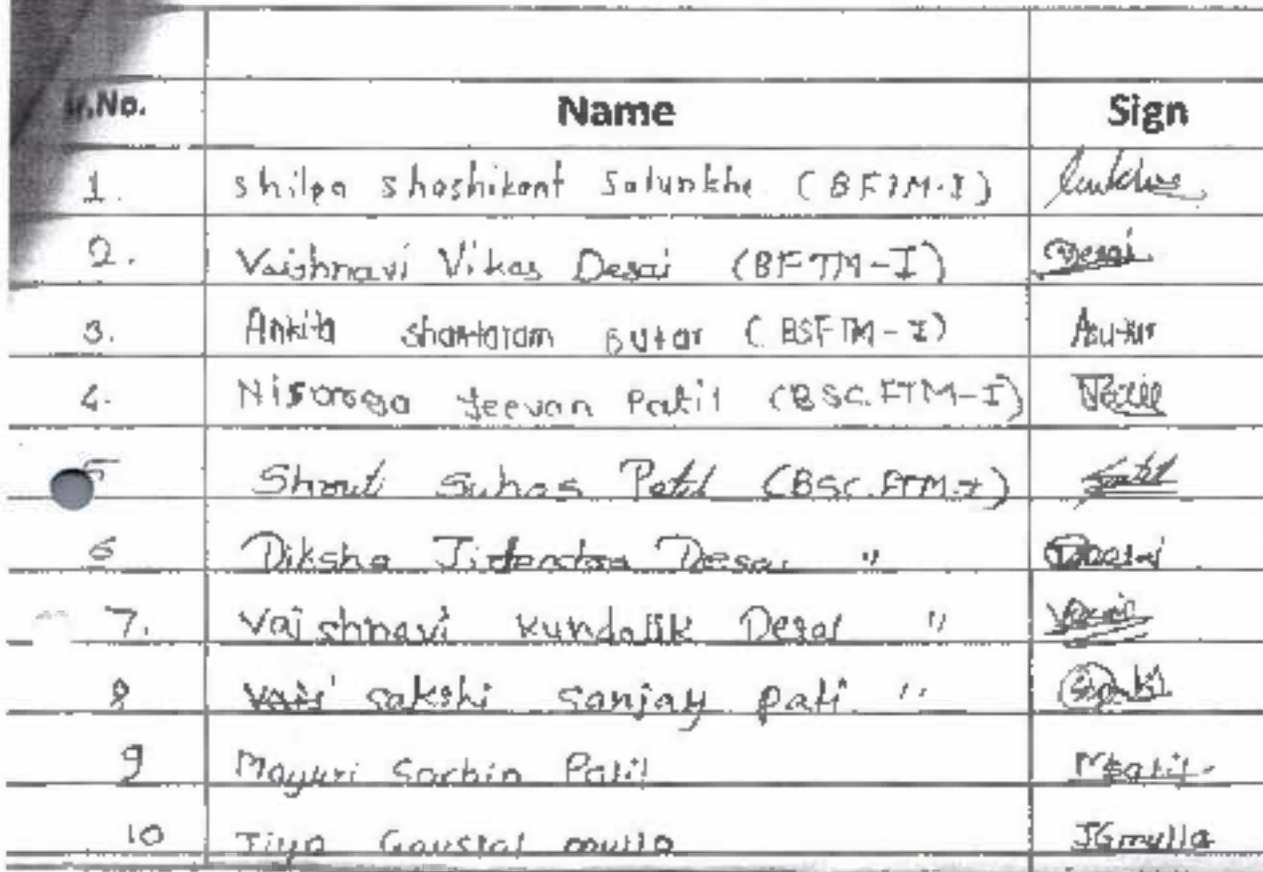 Sr.No. Name Sign
1. Shilpa Shashikant Salunkhe (BFTM-I)
2. Vaishnavi Vikas Desai (BFTM-I) Desai
3. Ankita shantaram sutar (BSFTM-I) Asutar
4. Nisarga Jeevan Patil (BSC.FTM-I) Patil
5 Shruti Suhas Patil (BSC.FTM-I)
6 Diksha Jitendra Desai " Desai
7. Vaishnavi Kundalik Desai "
8 sakshi sanjay pati "
9 Mayuri Sachin Patil MSPatil
10 Jiya mulla JGmulla